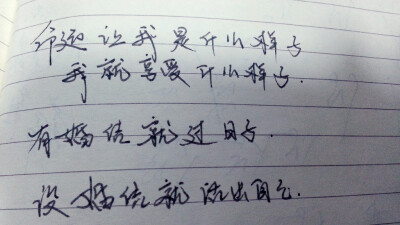 命运让我是什么样子
我就享受什么样子.
有婚结就过日子.
没婚结就活出自己.